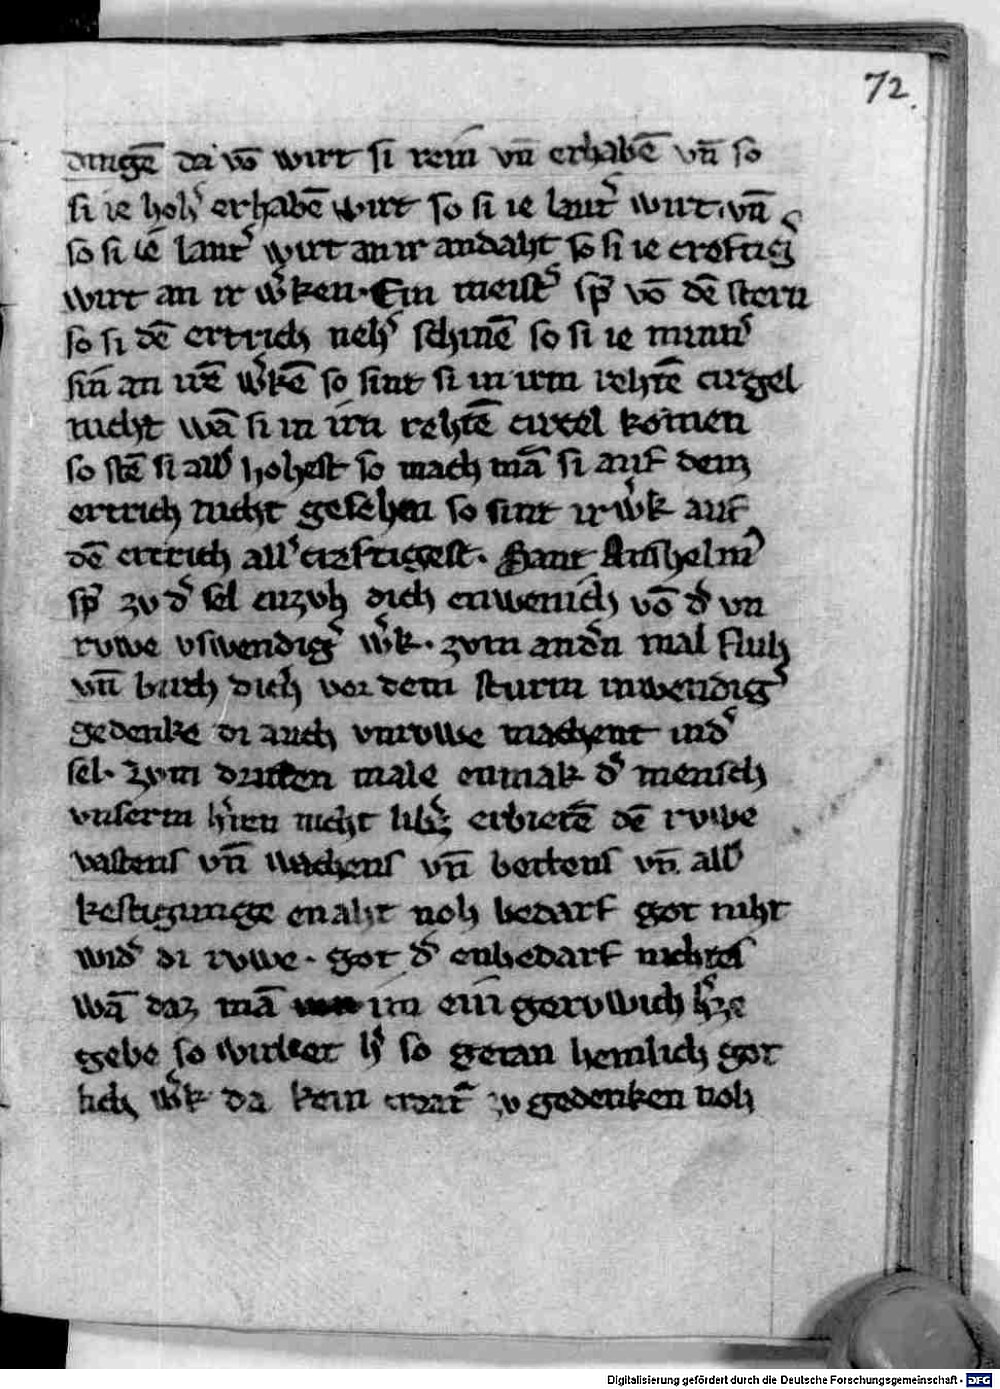 72.
dingē da vō wirt si rein vn̄ erhabē vn̄ so
si ie hoh͛ erhabē wirt so si ie laut͛ wirt vn̄
so si ie laut͛ wirt an ir andaht so si ie creftig͛
wirt an ir w͛ken. Ein meist͛ sp͛ vō dē stern
so si dē ertrich neh͛ schinē so si ie minn͛
sin an irē w͛kē so sint si in irm rehtē cirgel
nicht wā si in irn rehtē cirkel komen
so stē si all͛ hohest so mach mā si auf dem
ertrich nicht gesehen so sint ir w͛k auf
dē ertrich all͛ creftigest. Sant Anshelm͛
sp͛ zv d͛ sel enzvh dich enwenich vō d͛ vn
rvwe vswendig͛ w͛k. zvm and͛n mal fluh
vn̄ birch dich vor dem sturm inwendig͛
gedenke di auch vnrvwe machent in d͛
sel. Zvm dritten male enmak d͛ mensch
vnserm h͛ren nicht lib͛z erbietē dē rvwe
vastens vn̄ wachens vn̄ bettens vn̄ all͛
kestigunge enaht noh bedarf got niht
wid͛ di rvwe. got d͛ enbedarf nichtes
wā daz mā im ein gervwich h͛ze
gebe so wirket h͛ so getan hemlich got
lich w͛k da kein creat͛ zv gedenken noh
Digitalisierung gefördert durch die Deutsche Forschungsgemeinschaft - DFG